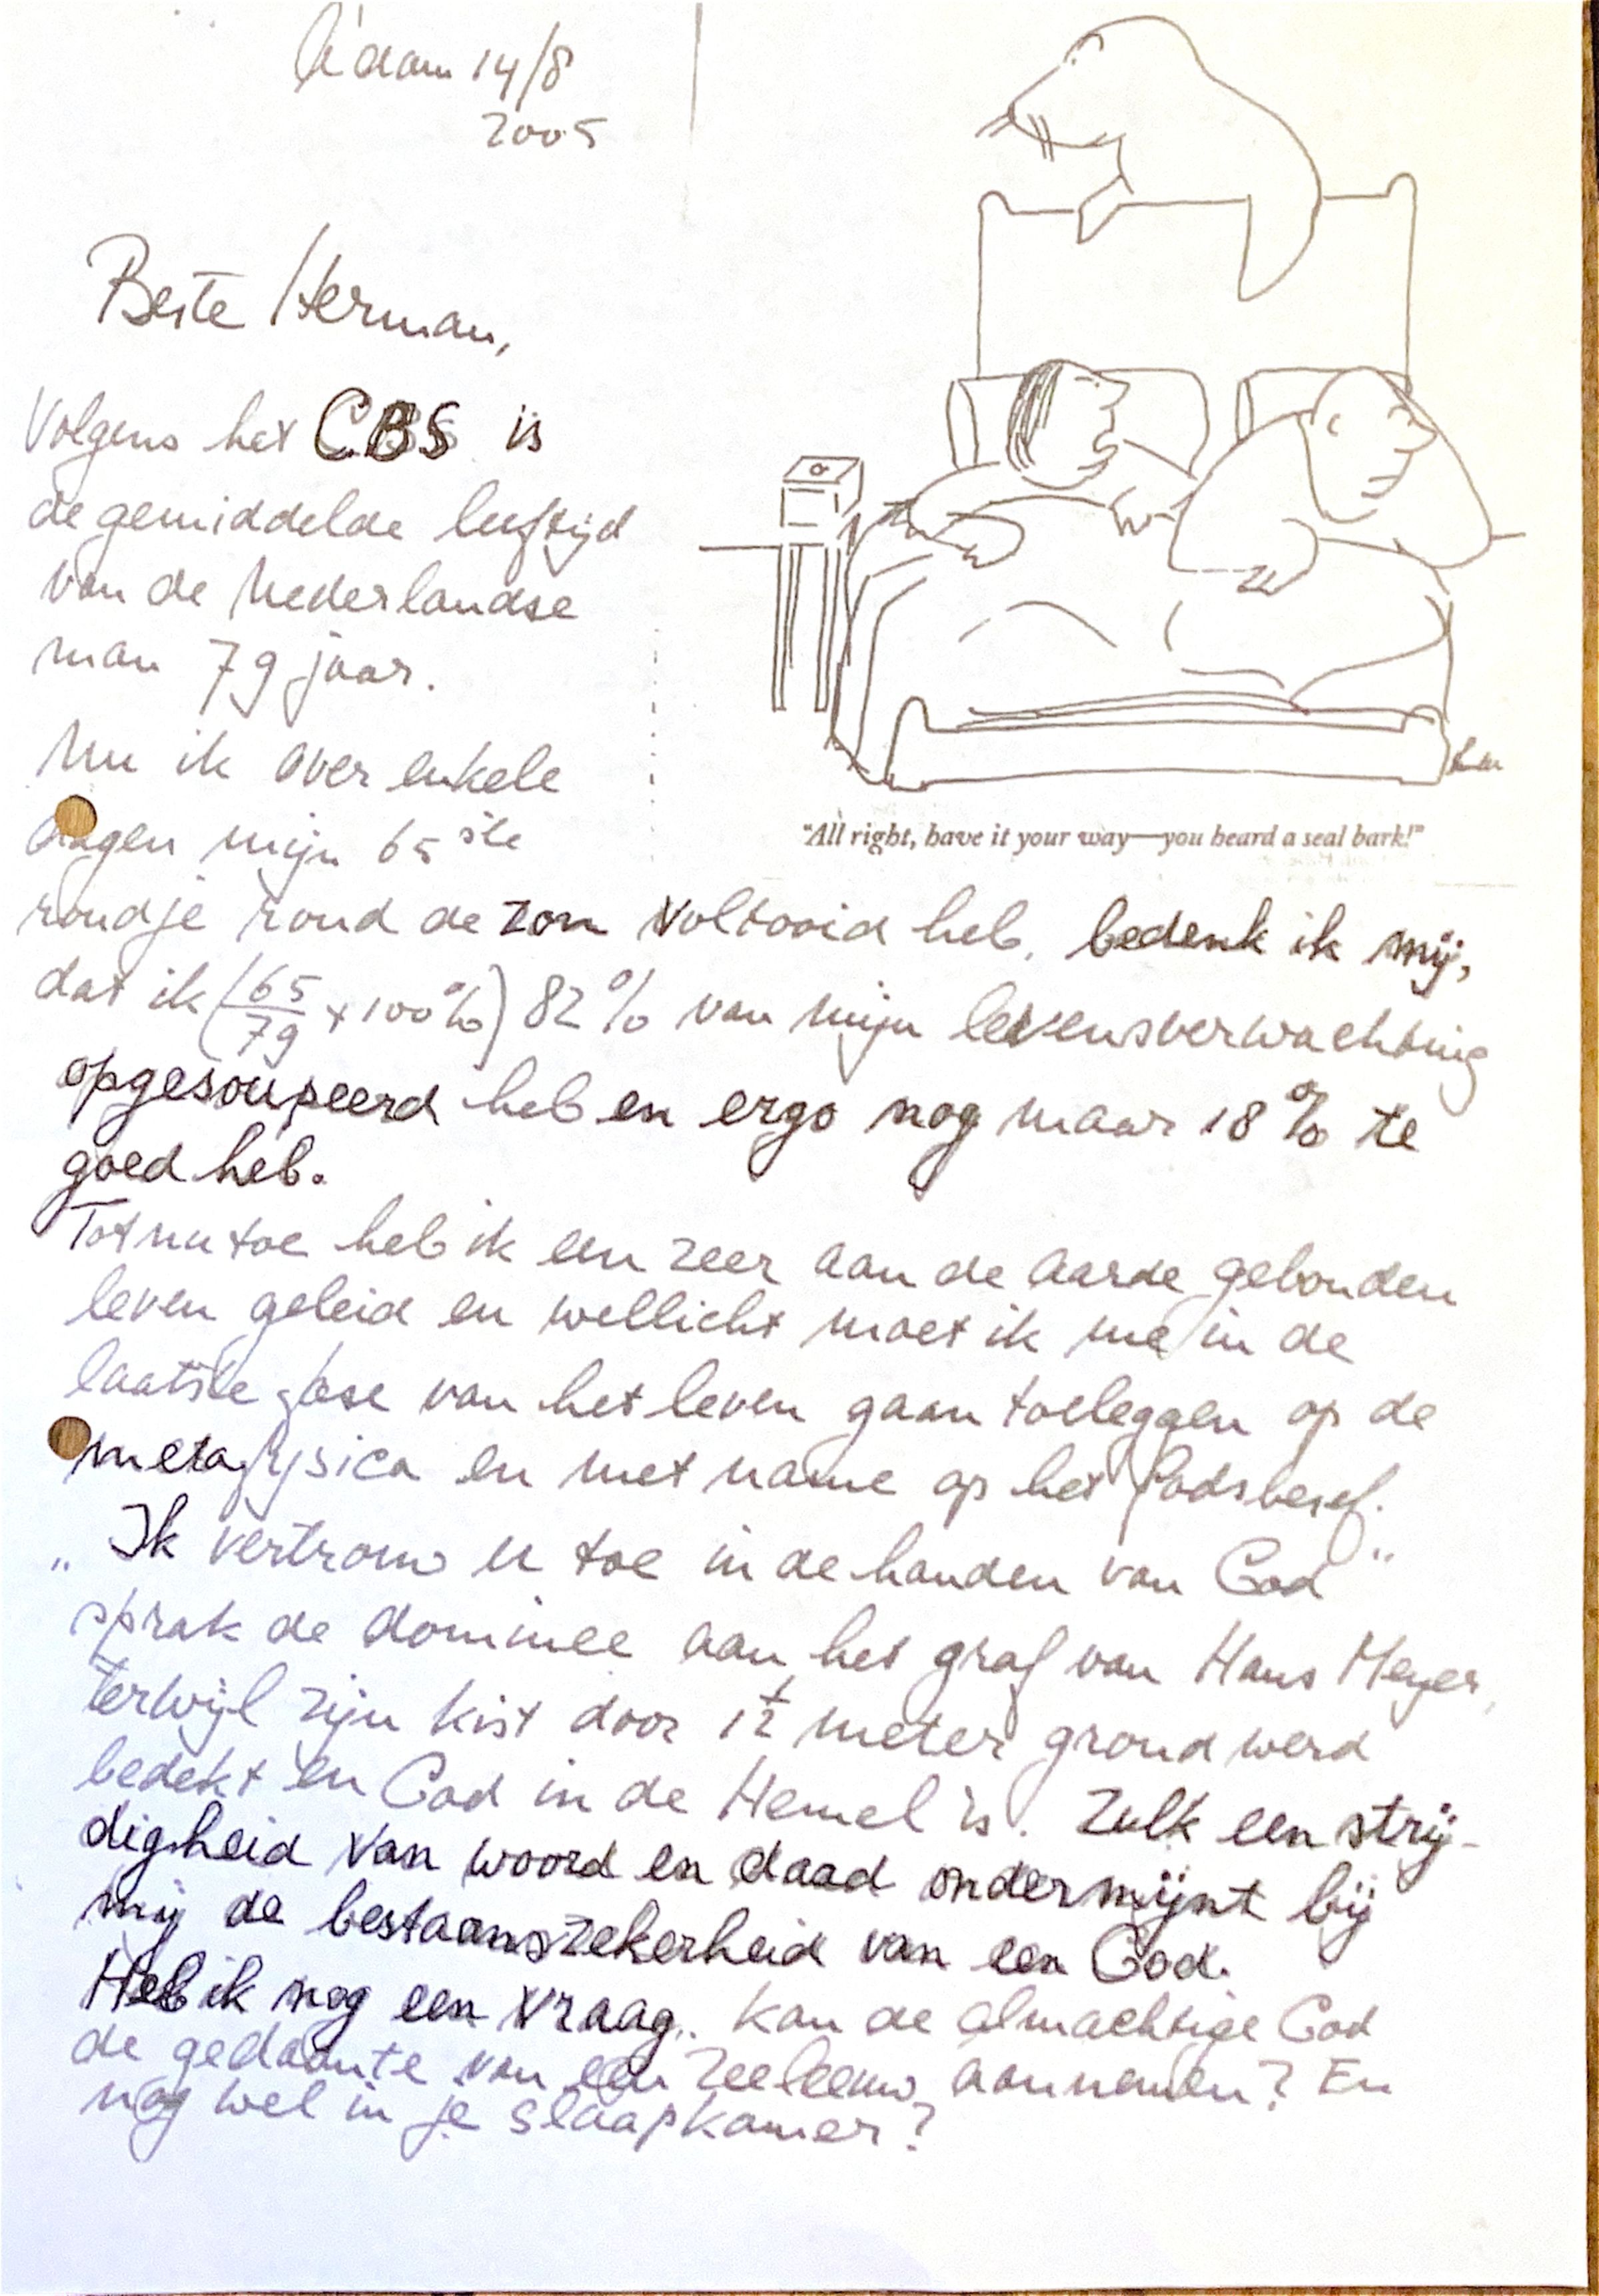 A'dam 14/8
2005
Beste Herman,
Volgens het CBS is
de gemiddelde leeftijd
van de Nederlandse
man 79 jaar.
Nu ik over enkele
dagen mijn 65 ste
rondje rond de zon voltooid heb, bedenk ik mij,
dat ik (65/79 x 100%) 82% van mijn levensverwachting
opgesoupeerd heb en ergo nog maar 18% te
goed heb.
Tot nu toe heb ik een zeer aan de aarde gebonden
leven geleid en wellicht moet ik me in de
laatste fase van het leven gaan toeleggen op de
metafysica en met name op het Godsbesef.
„Ik vertrouw u toe in de handen van God"
sprak de dominee aan het graf van Hans Meyer,
terwijl zijn kist door 1½ meter grond werd
bedekt en God in de Hemel is. Zulk een strij-
digheid van woord en daad ondermijnt bij
mij de bestaanszekerheid van een God.
Heb ik nog een vraag.. kan de almachtige God
de gedaante van een zeeleeuw aannemen? En
nog wel in je slaapkamer?
"All right, have it your way—you heard a seal bark!"